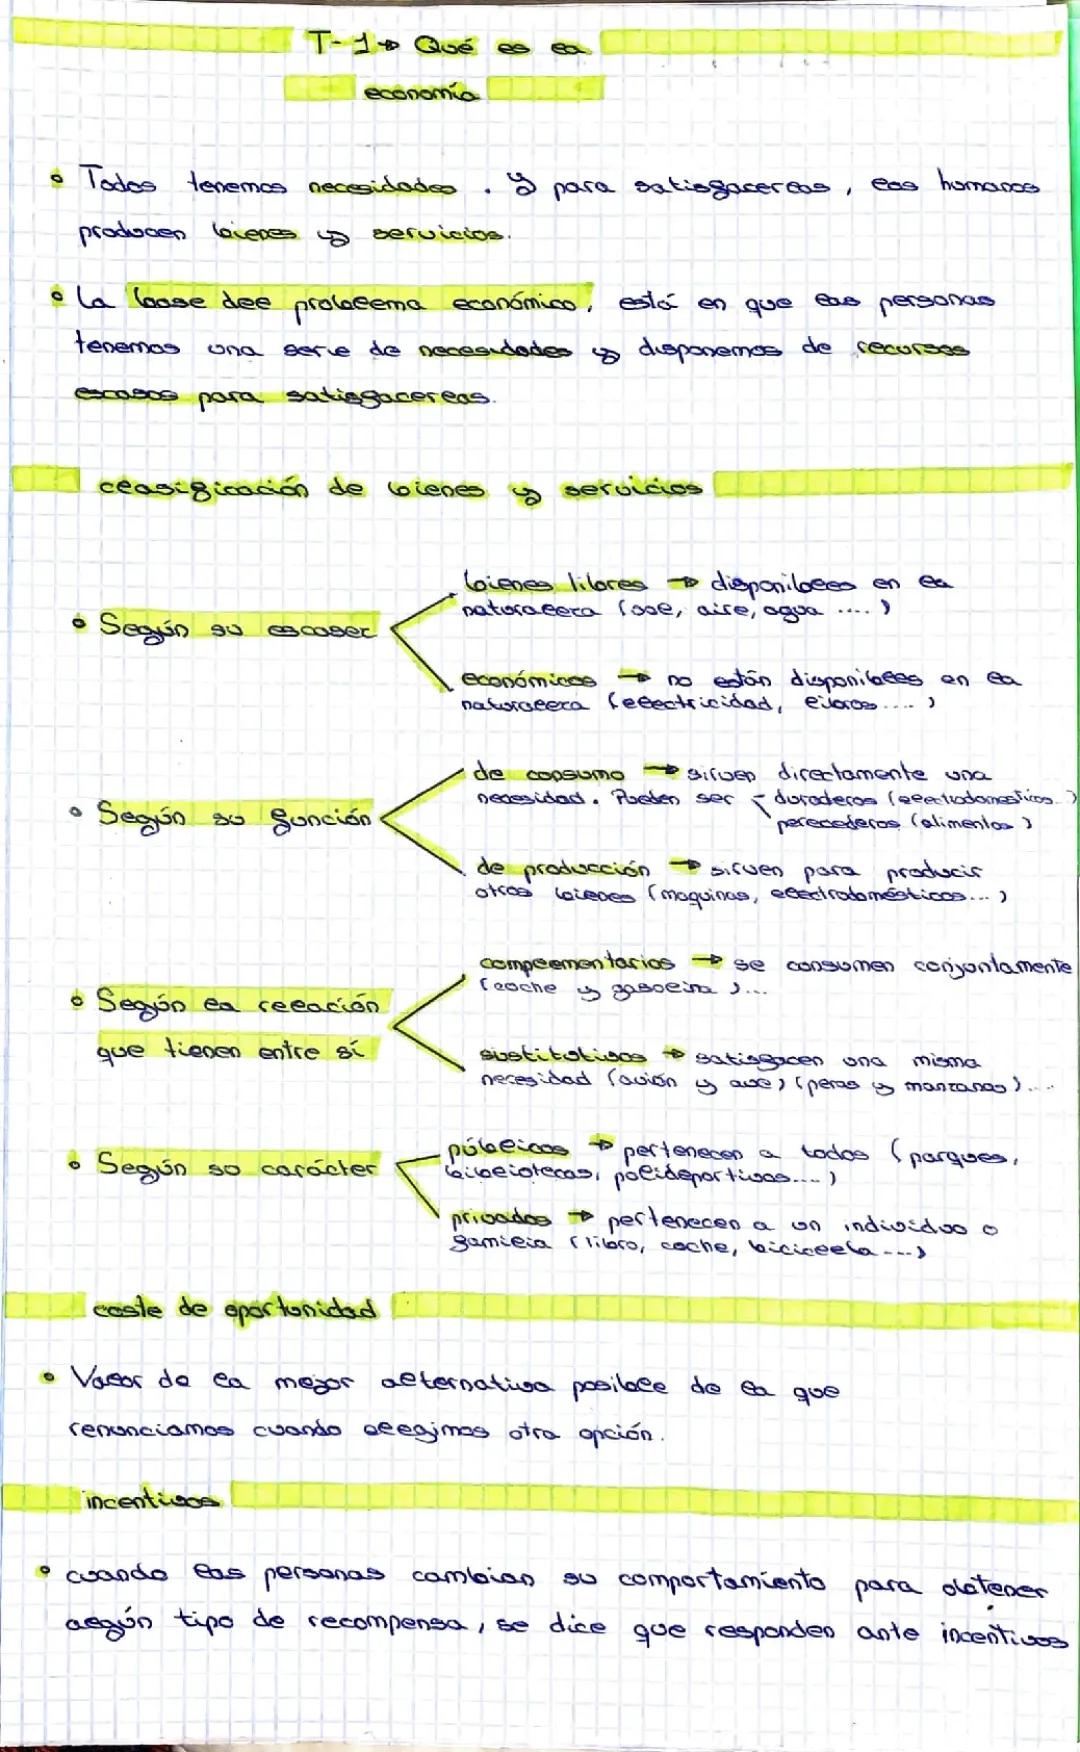 T-1→ Qué es la
economía
• Todos tenemos necesidades. Y para satisfacerlas, los humanos
producen bienes y servicios.
• La base del problema económico, está en que las personas
tenemos una serie de necesidades y disponemos de recursos
escasos para satisfacerlas.
clasificación de bienes y servicios
bienes libres → disponibles en la
naturaleza (sol, aire, agua ....)
• Según su escasez
económicos → no están disponibles en la
naturaleza (electricidad, libros....)
de consumo → sirven directamente una
necesidad. Pueden ser duraderos (electrodomésticos..)
perecederos (alimentos)
• Según su función
de producción → sirven para producir
otros bienes (maquinas, electrodomésticos...)
complementarios → se consumen conjuntamente
(coche y gasolina)...
• Según la relación
que tienen entre sí
sustitutivos → satisfacen una misma
necesidad (avión y ave) (peras y manzanas)....
públicos → pertenecen a todos (parques,
bibliotecas, polideportivos....)
• Según su carácter
privados → pertenecen a un individuo o
familia (libro, coche, bicicleta...)
coste de oportunidad
• Valor de la mejor alternativa posible de la que
renunciamos cuando elegimos otra opción.
incentivos
• cuando las personas cambian su comportamiento para obtener
algún tipo de recompensa, se dice que responden ante incentivos